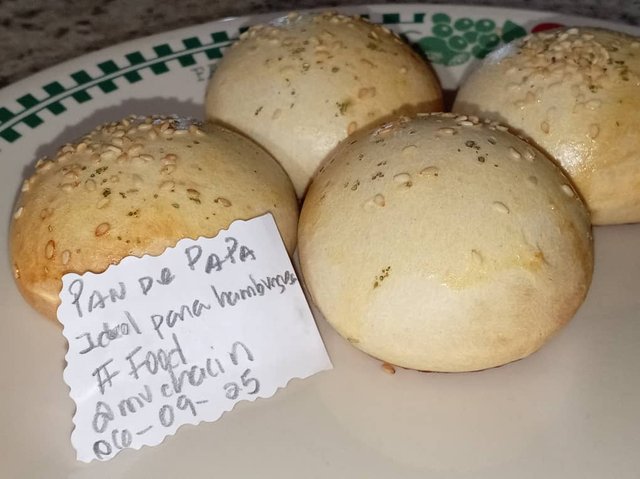 PAN De PAPA
Ideal para hamburgesa
# Food
@mvchacin
06-09-25